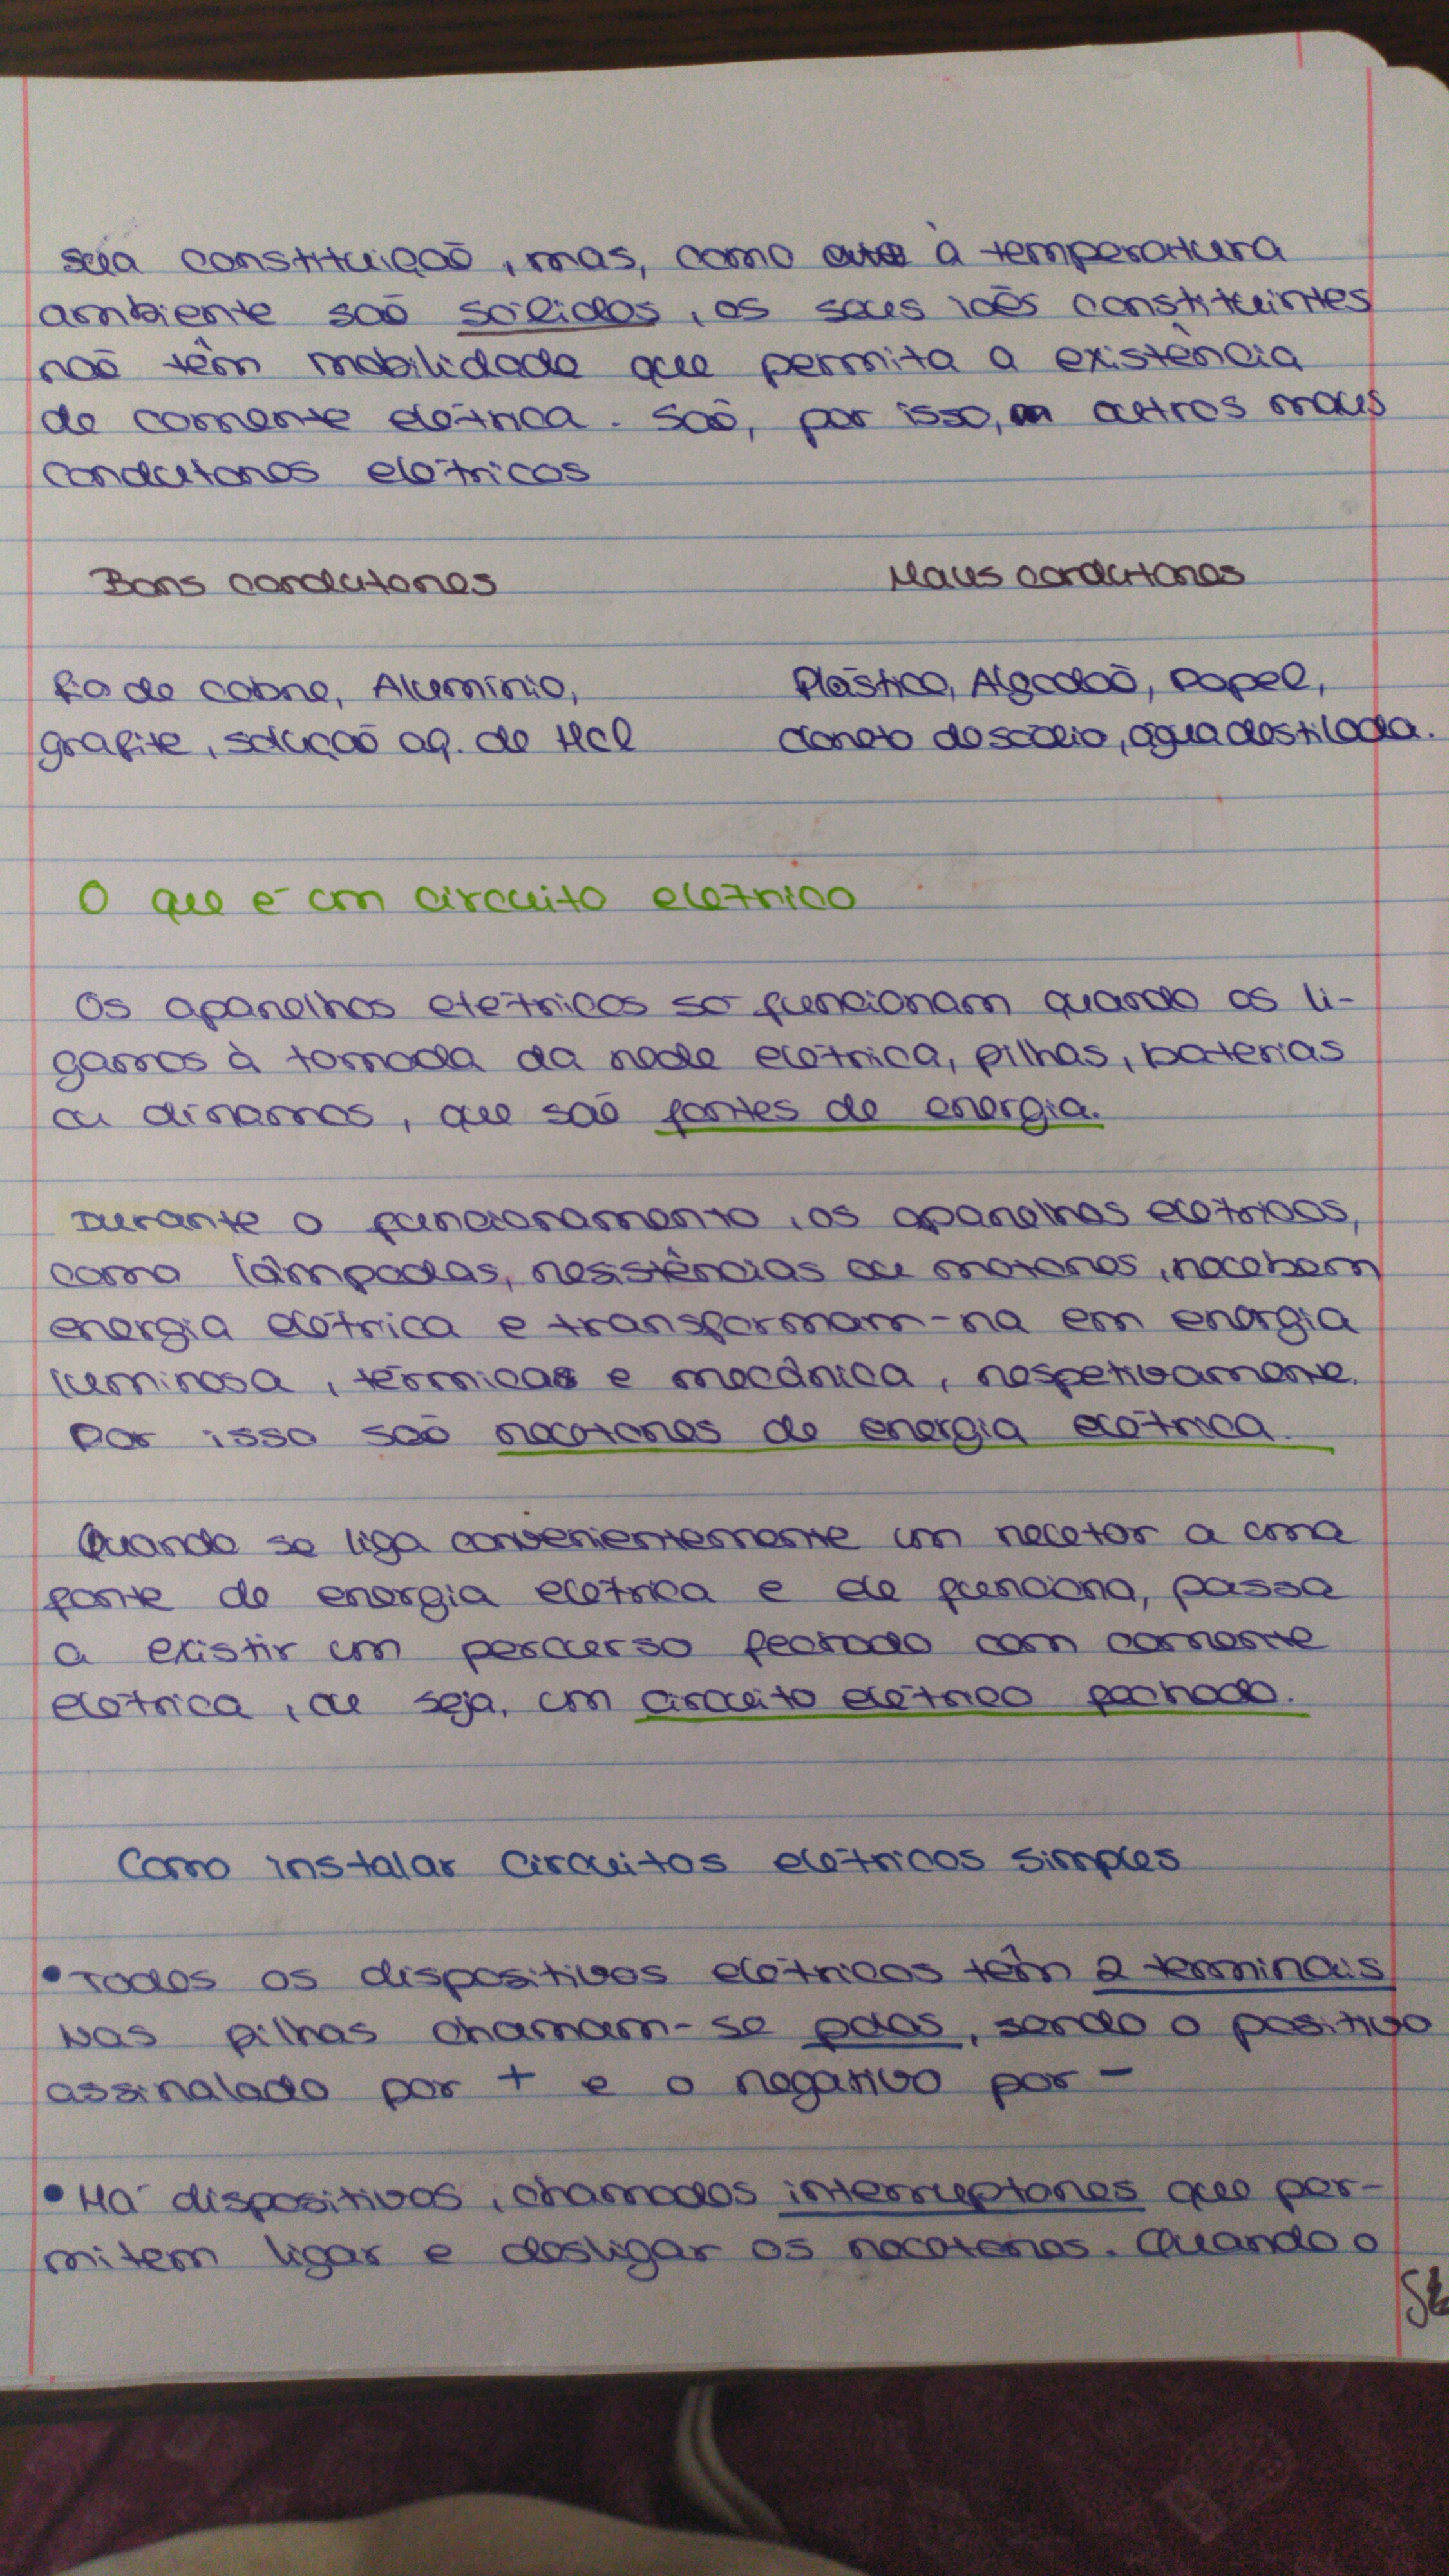 sua constituição, mas, como à temperatura
ambiente são sólidos, os seus iões constituintes
não têm mobilidade que permita a existência
de corrente elétrica. São, por isso, outros maus
condutores elétricos
Bons condutores
Maus condutores
fio de cobre, Alumínio,
grafite, solução aq. de HCl
Plástico, Algodão, Papel,
cloreto de sódio, água destilada.
O que é um circuito elétrico
Os aparelhos elétricos só funcionam quando os li-
gamos à tomada da rede elétrica, pilhas, baterias
ou dínamos, que são fontes de energia.
Durante o funcionamento, os aparelhos elétricos,
como lâmpadas, resistências ou motores, recebem
energia elétrica e transformam-na em energia
luminosa, térmica e mecânica, respetivamente.
Por isso são recetores de energia elétrica.
Quando se liga convenientemente um recetor a uma
fonte de energia elétrica e ele funciona, passa
a existir um percurso fechado com corrente
elétrica, ou seja, um circuito elétrico fechado.
Como instalar circuitos elétricos simples
• Todos os dispositivos elétricos têm 2 terminais
Nas pilhas chamam-se polos, sendo o positivo
assinalado por + e o negativo por -
• Há dispositivos, chamados interruptores que per-
mitem ligar e desligar os recetores. Quando o